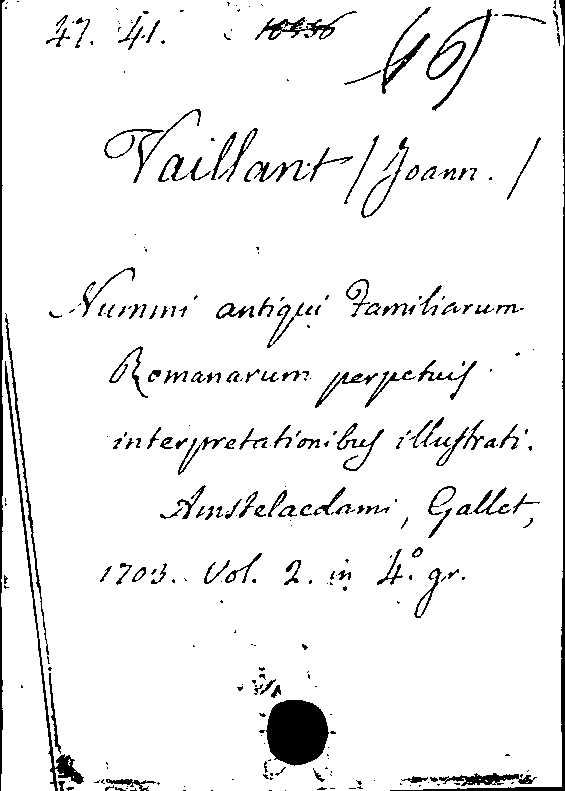 47. 41.
Vaillant / Joann. /
Nummi antiqui Familiarum
Romanarum perpetuis
interpretationibus illustrati.
Amstelaedami, Gallet,
1703. Vol. 2. in 4.° gr.